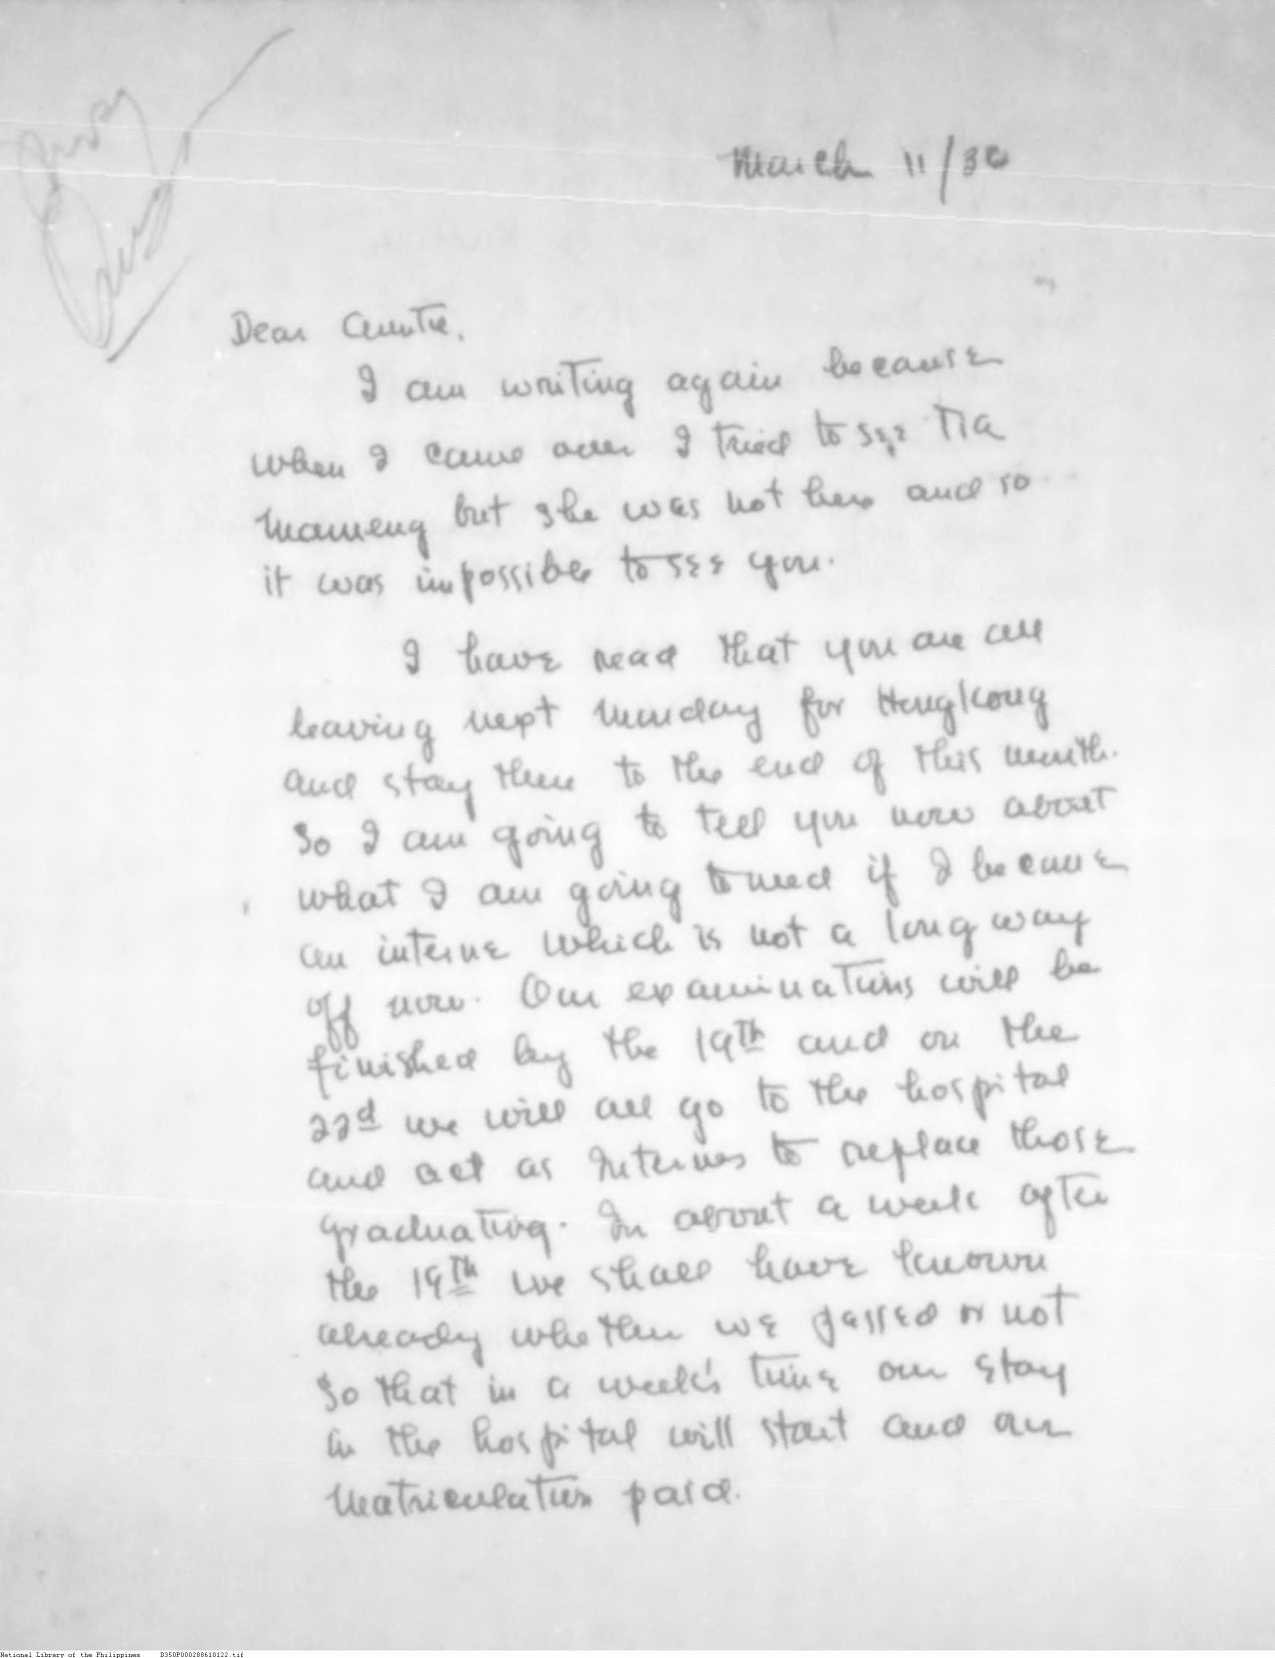 March 11/30
Dear Auntie,
I am writing again because
when I came over I tried to see Tia
Mameng but she was not here and so
it was impossible to see you.
I have read that you are all
leaving next Monday for HongKong
and stay there to the end of this month.
So I am going to tell you now about
what I am going to need if I became
an interne which is not a long way
off now. Our examinations will be
finished by the 19th and on the
22d we will all go to the hospital
and act as Internes to replace those
graduating. In about a week after
the 19th we shall have known
already whether we passed or not
so that in a week's time our stay
in the hospital will start and our
matriculation paid.
National Library of the Philippines D350P000288610122.tif